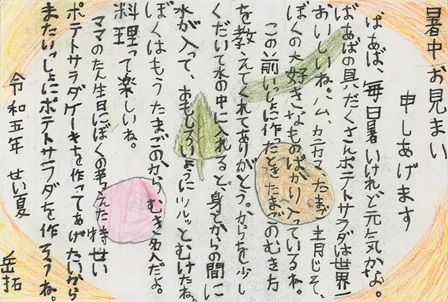 暑中お見まい
申しあげます
ばあば、毎日暑いけれど元気かな。
ばあばの具だくさんポテトサラダは世界一
おいしいね。ハム、カニカマ、たまご、青じそ、
ぼくの大好きなものばかり入っているね。
この前いっしょに作ったとき、たまごのむき方
を教えてくれてありがとう。からを少し
くだいて水の中に入れると身とからの間に
水が入って、おもしろいようにツルッとむけたね。
ぼくはもうたまごのからむき名人だよ。
料理って楽しいね。
ママのたん生日にぼくの考えた特せい
ポテトサラダケーキを作ってあげたいから
またいっしょにポテトサラダを作ろうね。
令和五年 せい夏
岳拓